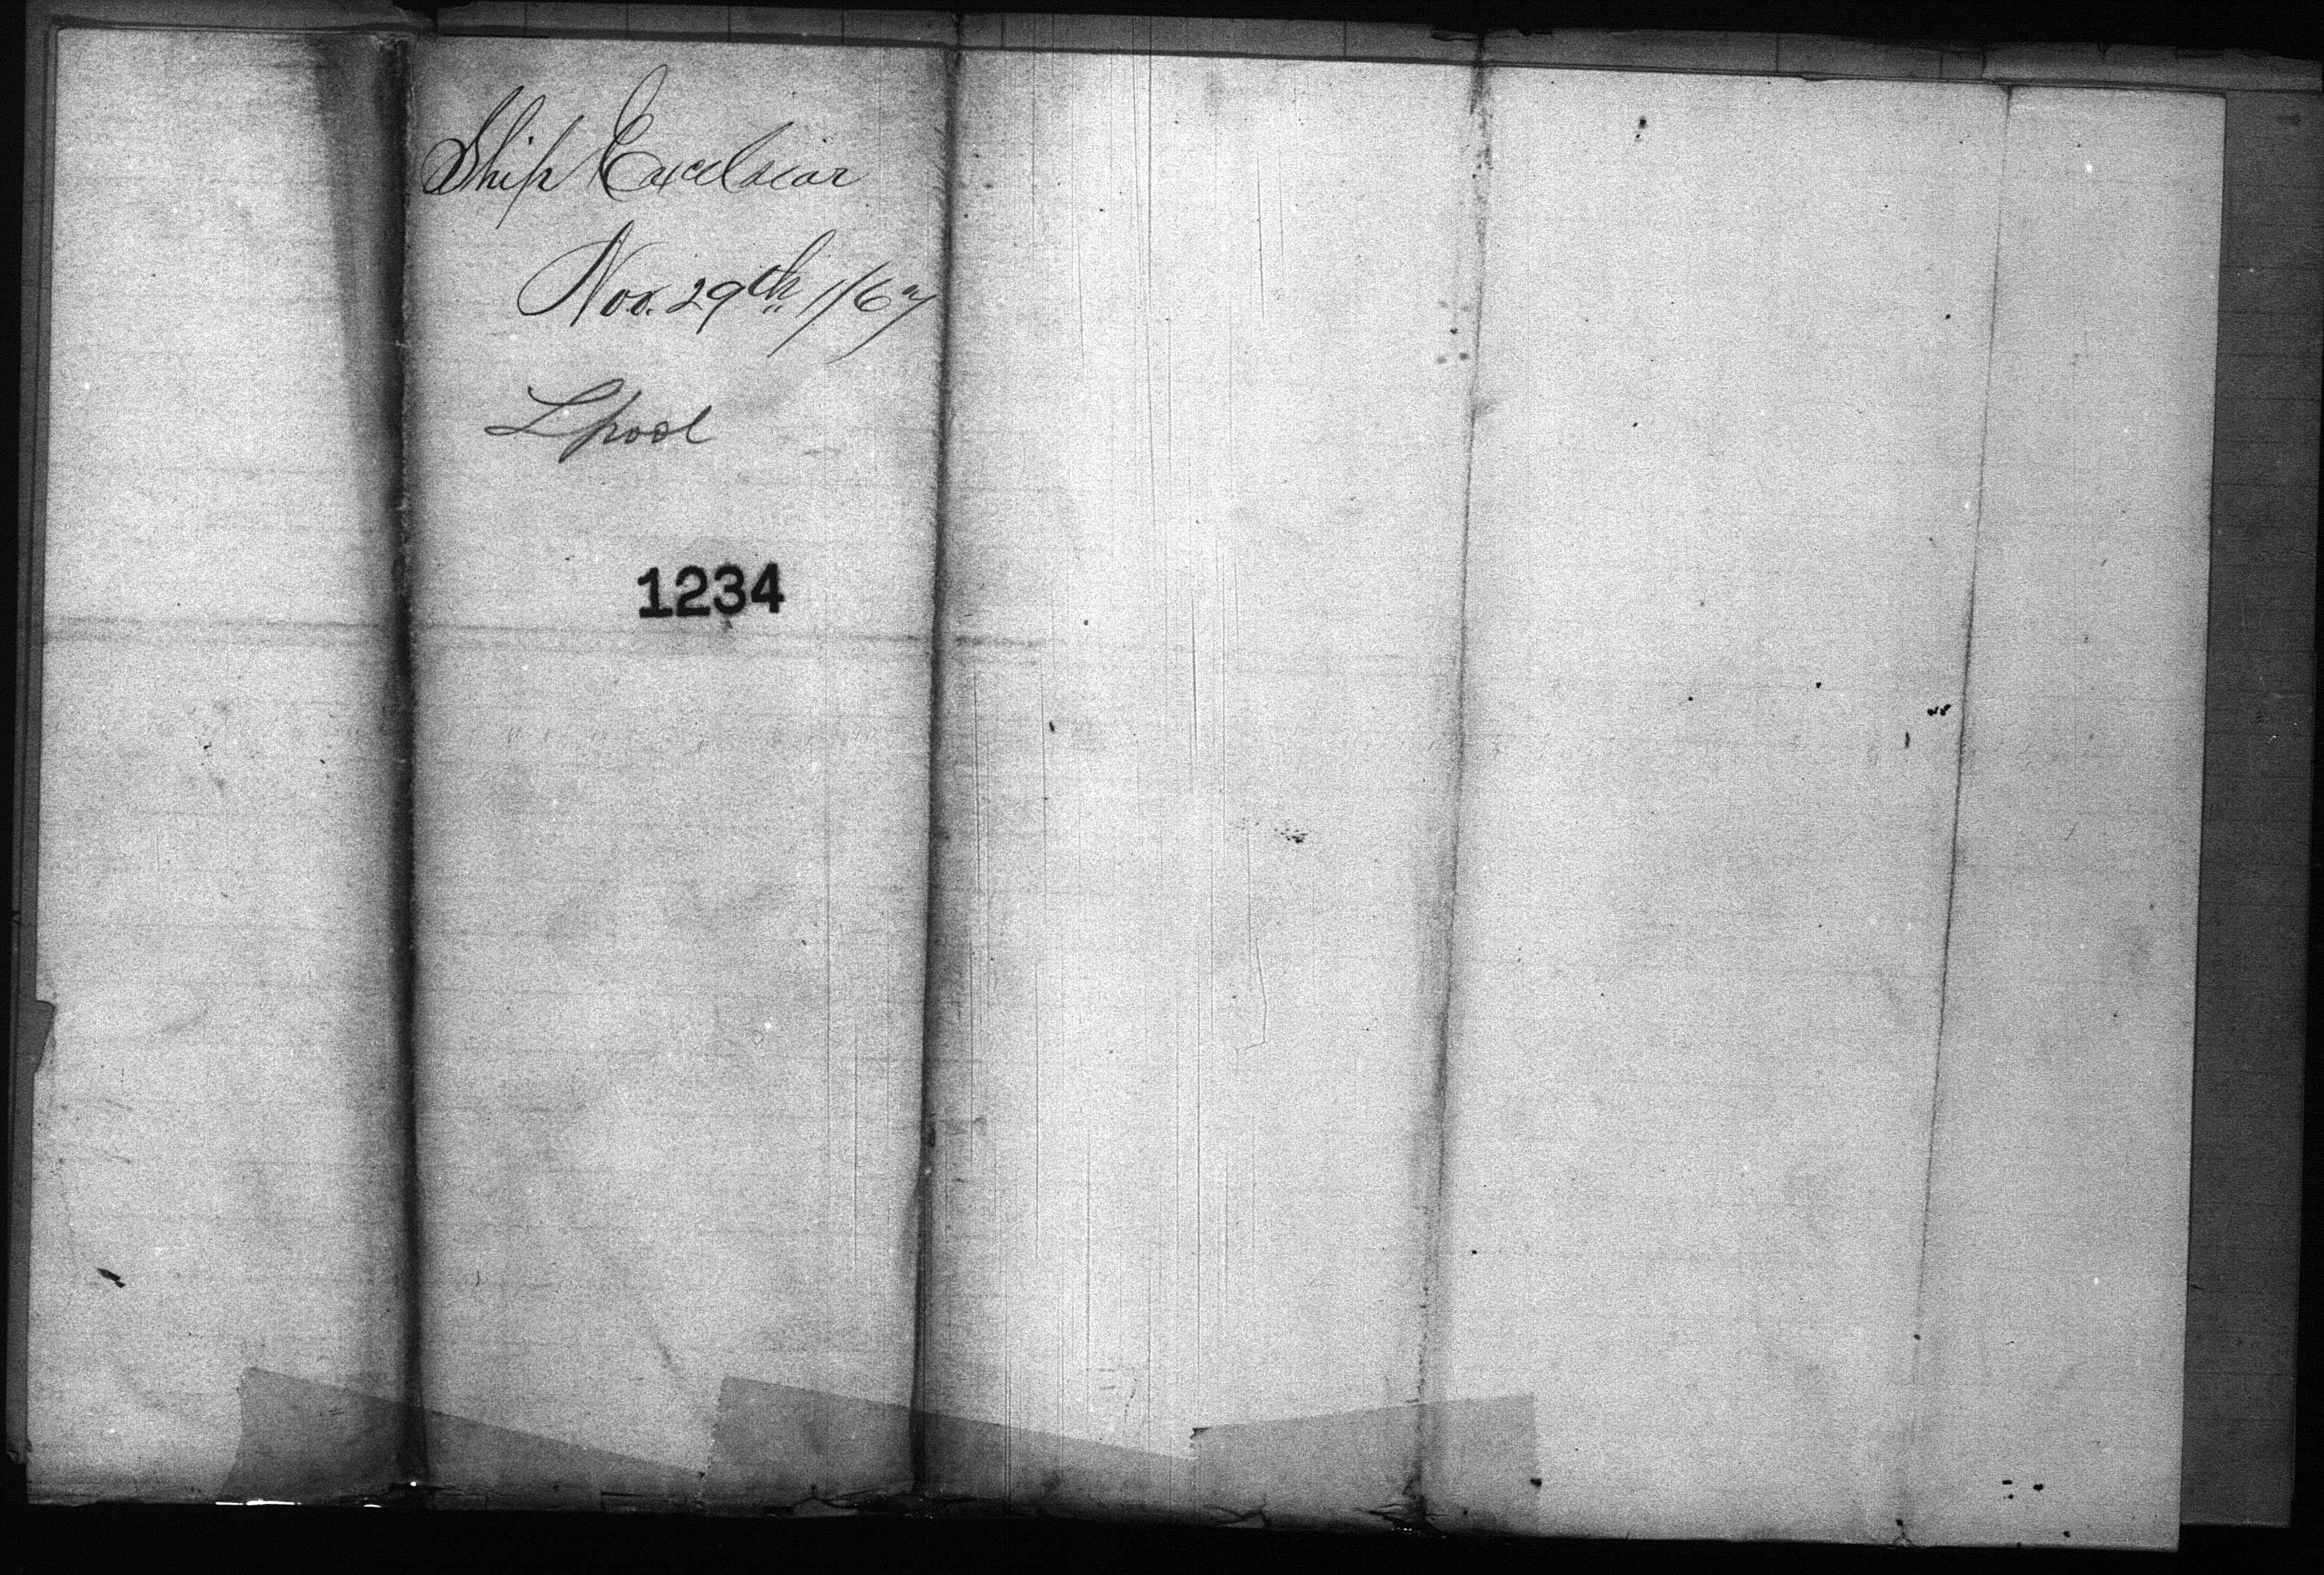 Ship Excelsior
Nov. 29th /67
Lpool
1234